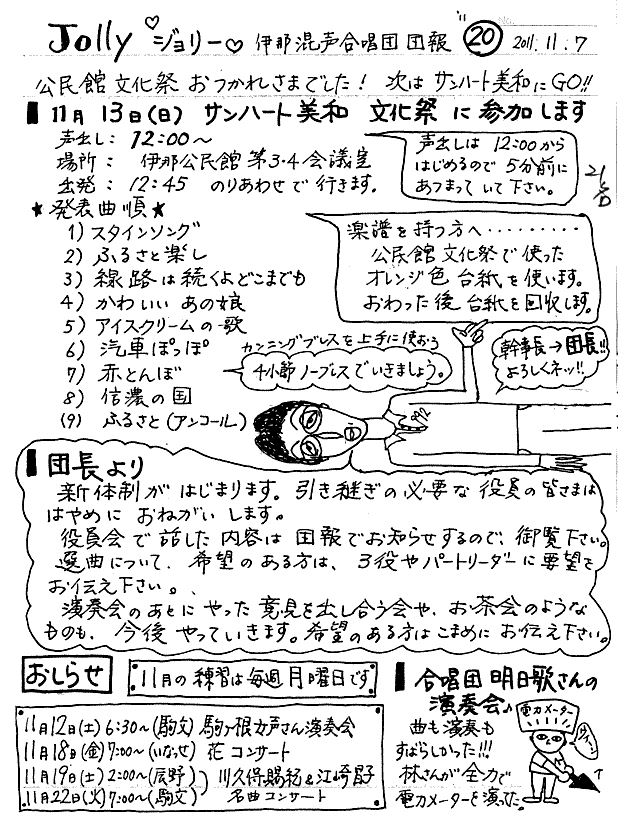 Jolly ジョリー 伊那混声合唱団団報 '11 20 2011.11.7
公民館文化祭おつかれさまでした！ 次はサンハート美和にGO!!
11月13日(日) サンハート美和 文化祭に参加します
声出し： 12:00〜
場所： 伊那公民館第3・4会議室
出発： 12:45 のりあわせで行きます。
声出しは 12:00から
はじめるので 5分前に
あつまっていて下さい。
★発表曲順★
1) スタインソング
2) ふるさと楽し
3) 線路は続くよどこまでも
4) かわいいあの娘
5) アイスクリームの歌
6) 汽車ぽっぽ
7) 赤とんぼ
8) 信濃の国
(9) ふるさと(アンコール)
楽譜を持つ方へ・・・・・・・・・
公民館文化祭で使った
オレンジ色台紙を使います。
おわった後台紙を回収します。
カンニングブレスを上手に使おう
4小節ノーブレスでいきましょう。
幹事長→団長!!
よろしくネッ!!
団長より
新体制がはじまります。引き継ぎの必要な役員の皆さまは
はやめにおねがいします。
役員会で話した内容は団報でお知らせするので、御覧下さい。
選曲について、希望のある方は、3役やパートリーダーに要望を
お伝え下さい。
演奏会のあとにやった意見を出し合う会や、お茶会のような
ものも、今後やっていきます。希望のある方はこまめにお伝え下さい。
おしらせ
11月の練習は毎週月曜日です
11月12日(土) 6:30〜(駒文) 駒ヶ根女声さん演奏会
11月18日(金) 7:00〜(いなっせ) 花コンサート
11月19日(土) 2:00〜(辰野) 川久保賜紀&江崎昌子
11月22日(火) 7:00〜(駒文) 名曲コンサート
合唱団明日歌さんの
演奏会♪
曲も演奏も
すばらしかった!!!
林さんが全力で
電力メーターを演った。
電力メーター